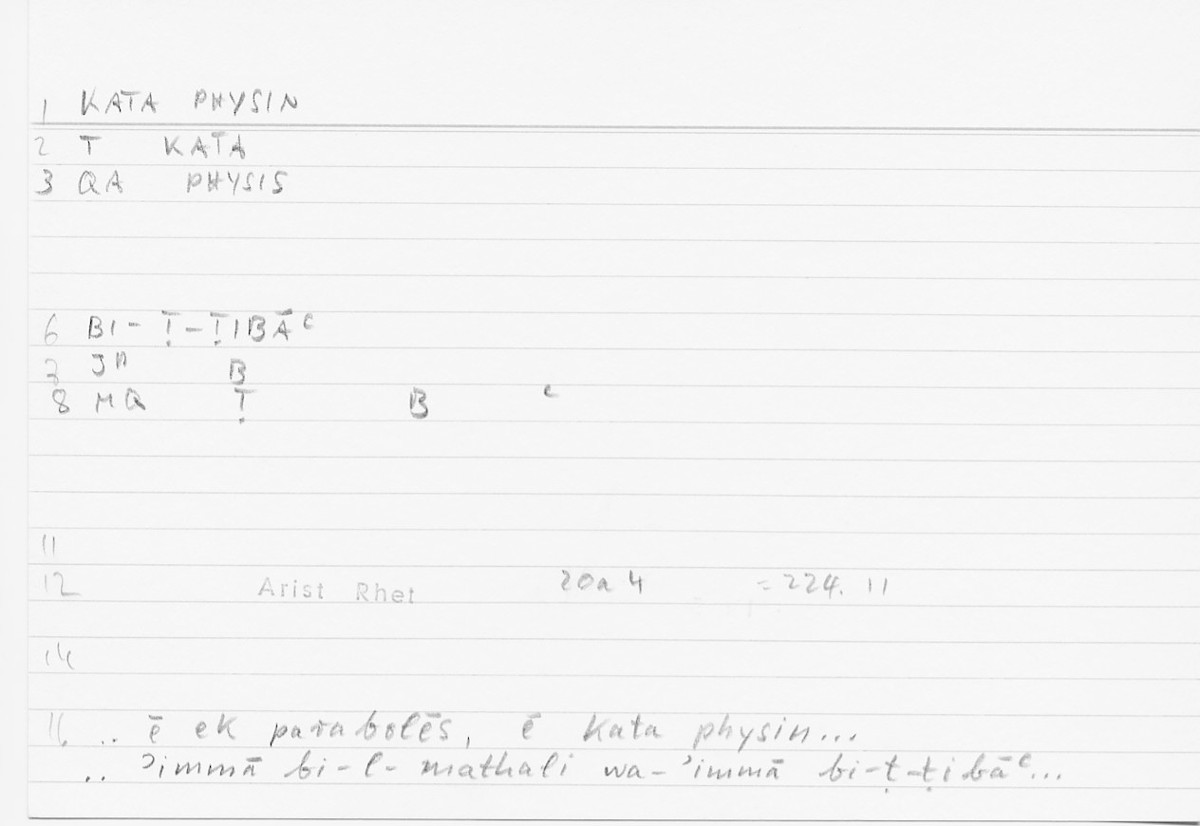 1 KATA PHYSIN
2 T KATA
3 QA PHYSIS
6 BI-Ṭ-ṬIBĀᶜ
7 JA B
8 MQ Ṭ B ᶜ
11
12 Arist Rhet 20a 4 = 224. 11
14
16 .. ē ek parabolēs, ē kata physin...
.. ʾimmā bi-l-mathali wa-ʾimmā bi-ṭ-ṭibāᶜ...